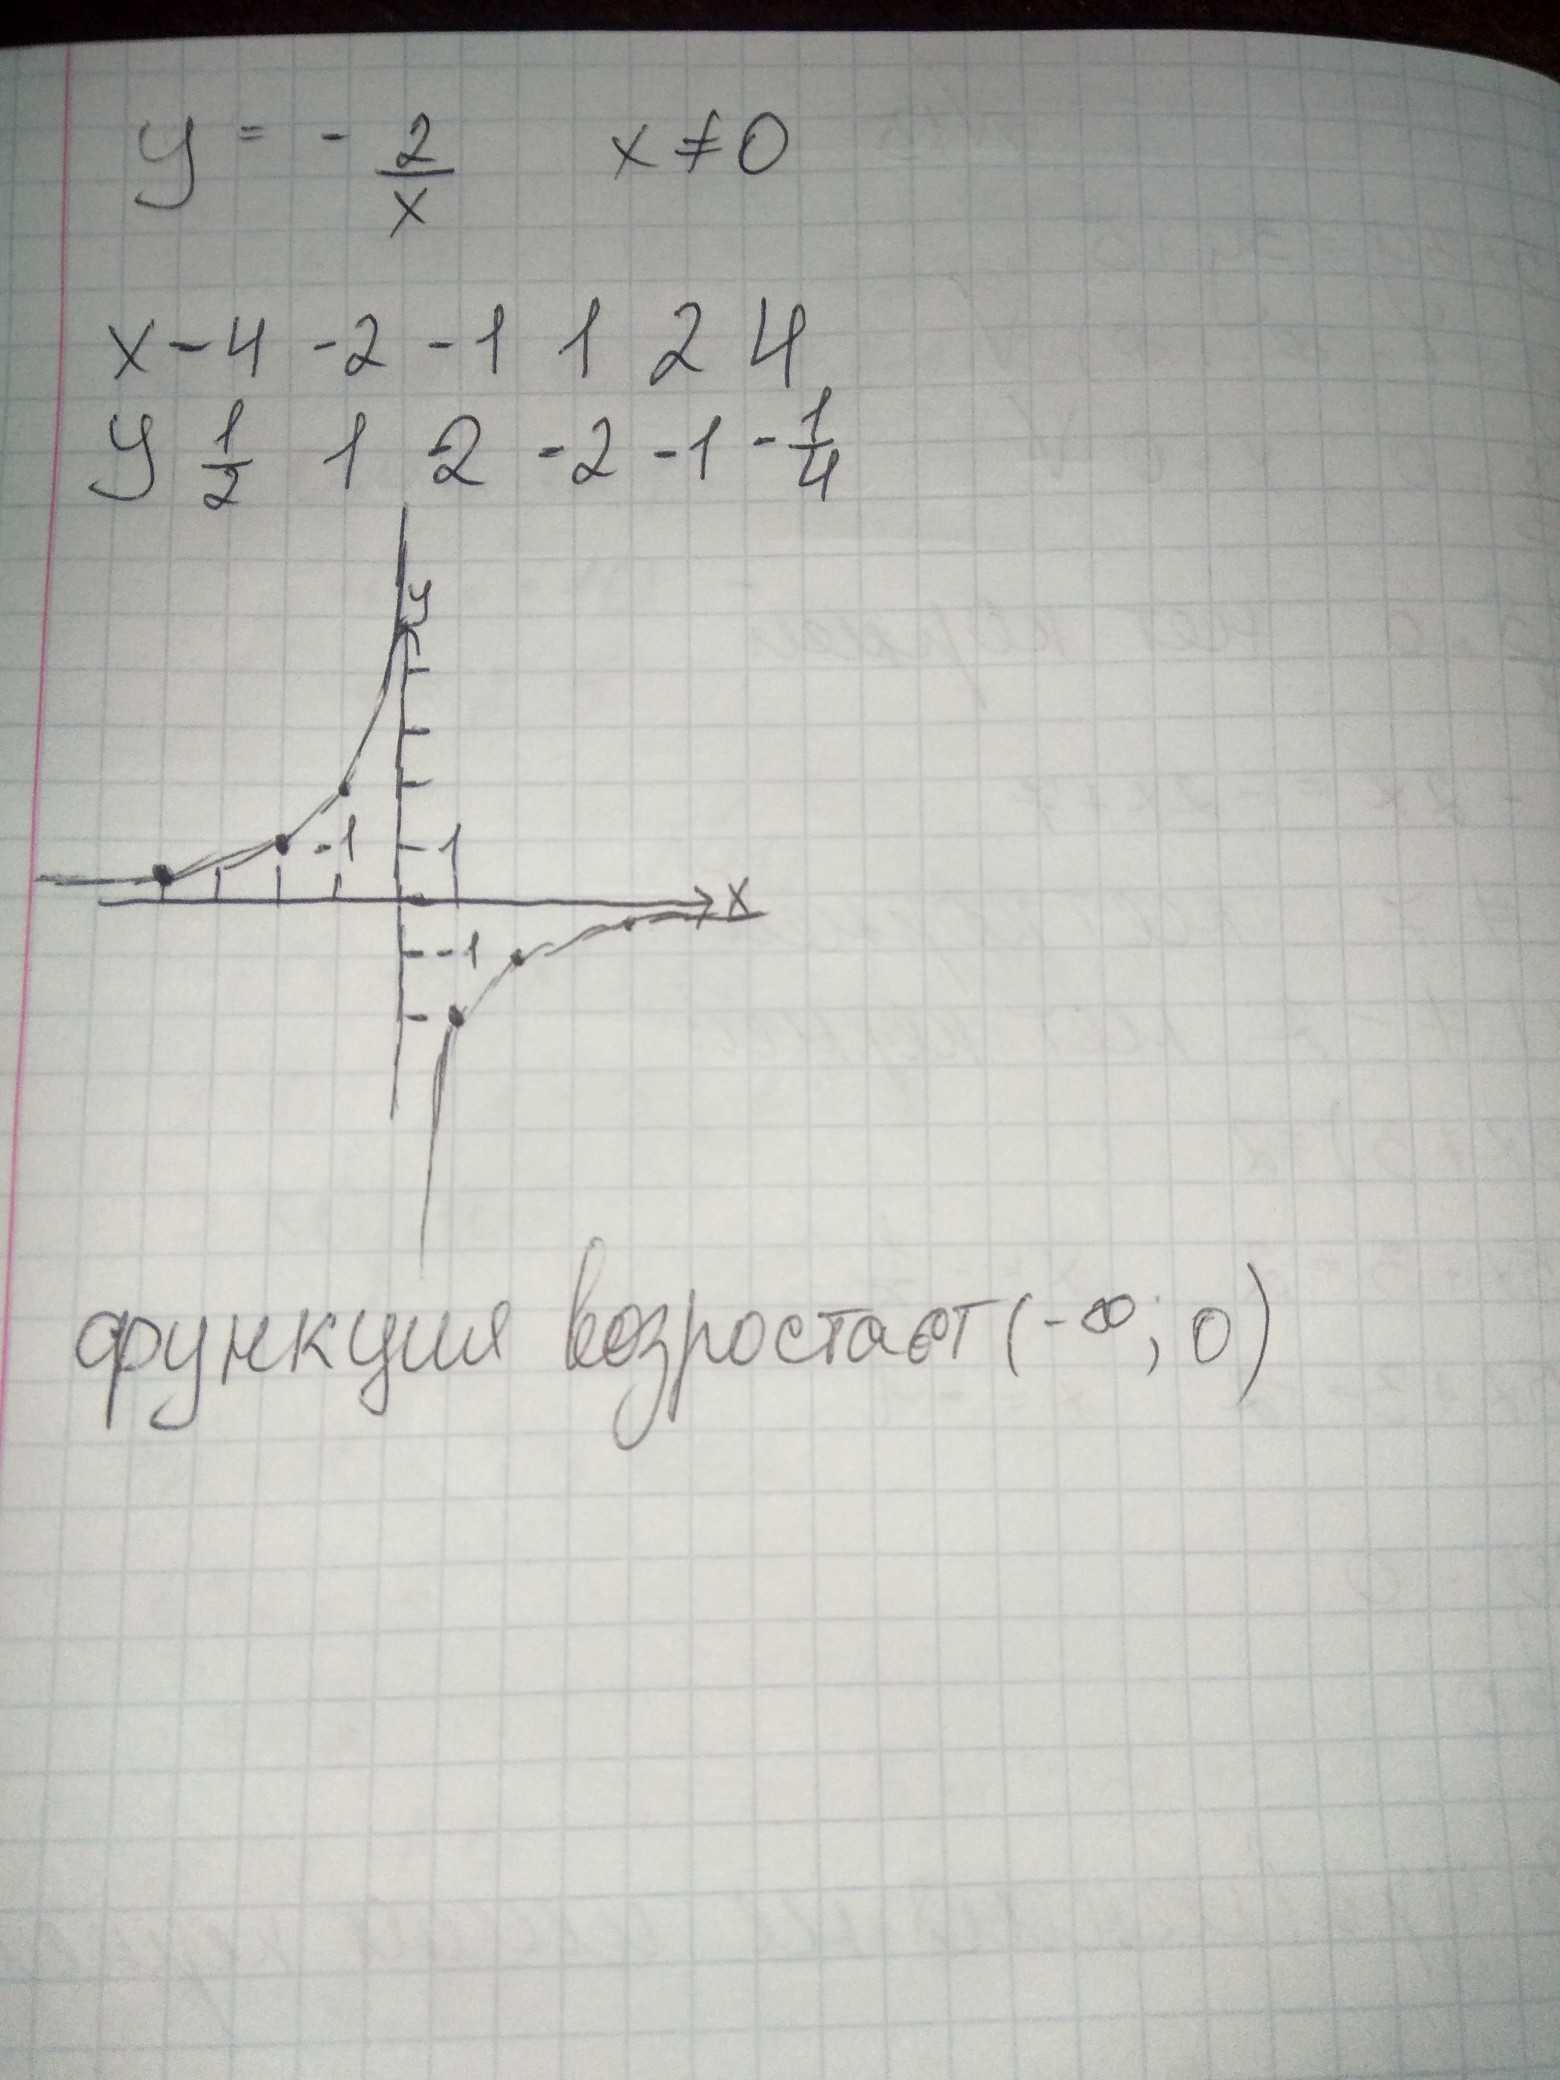 y = - 2/x x ≠ 0
x -4 -2 -1 1 2 4
y 1/2 1 2 -2 -1 -1/4
y
-1 1
x
-1
функция возростает (-∞; 0)